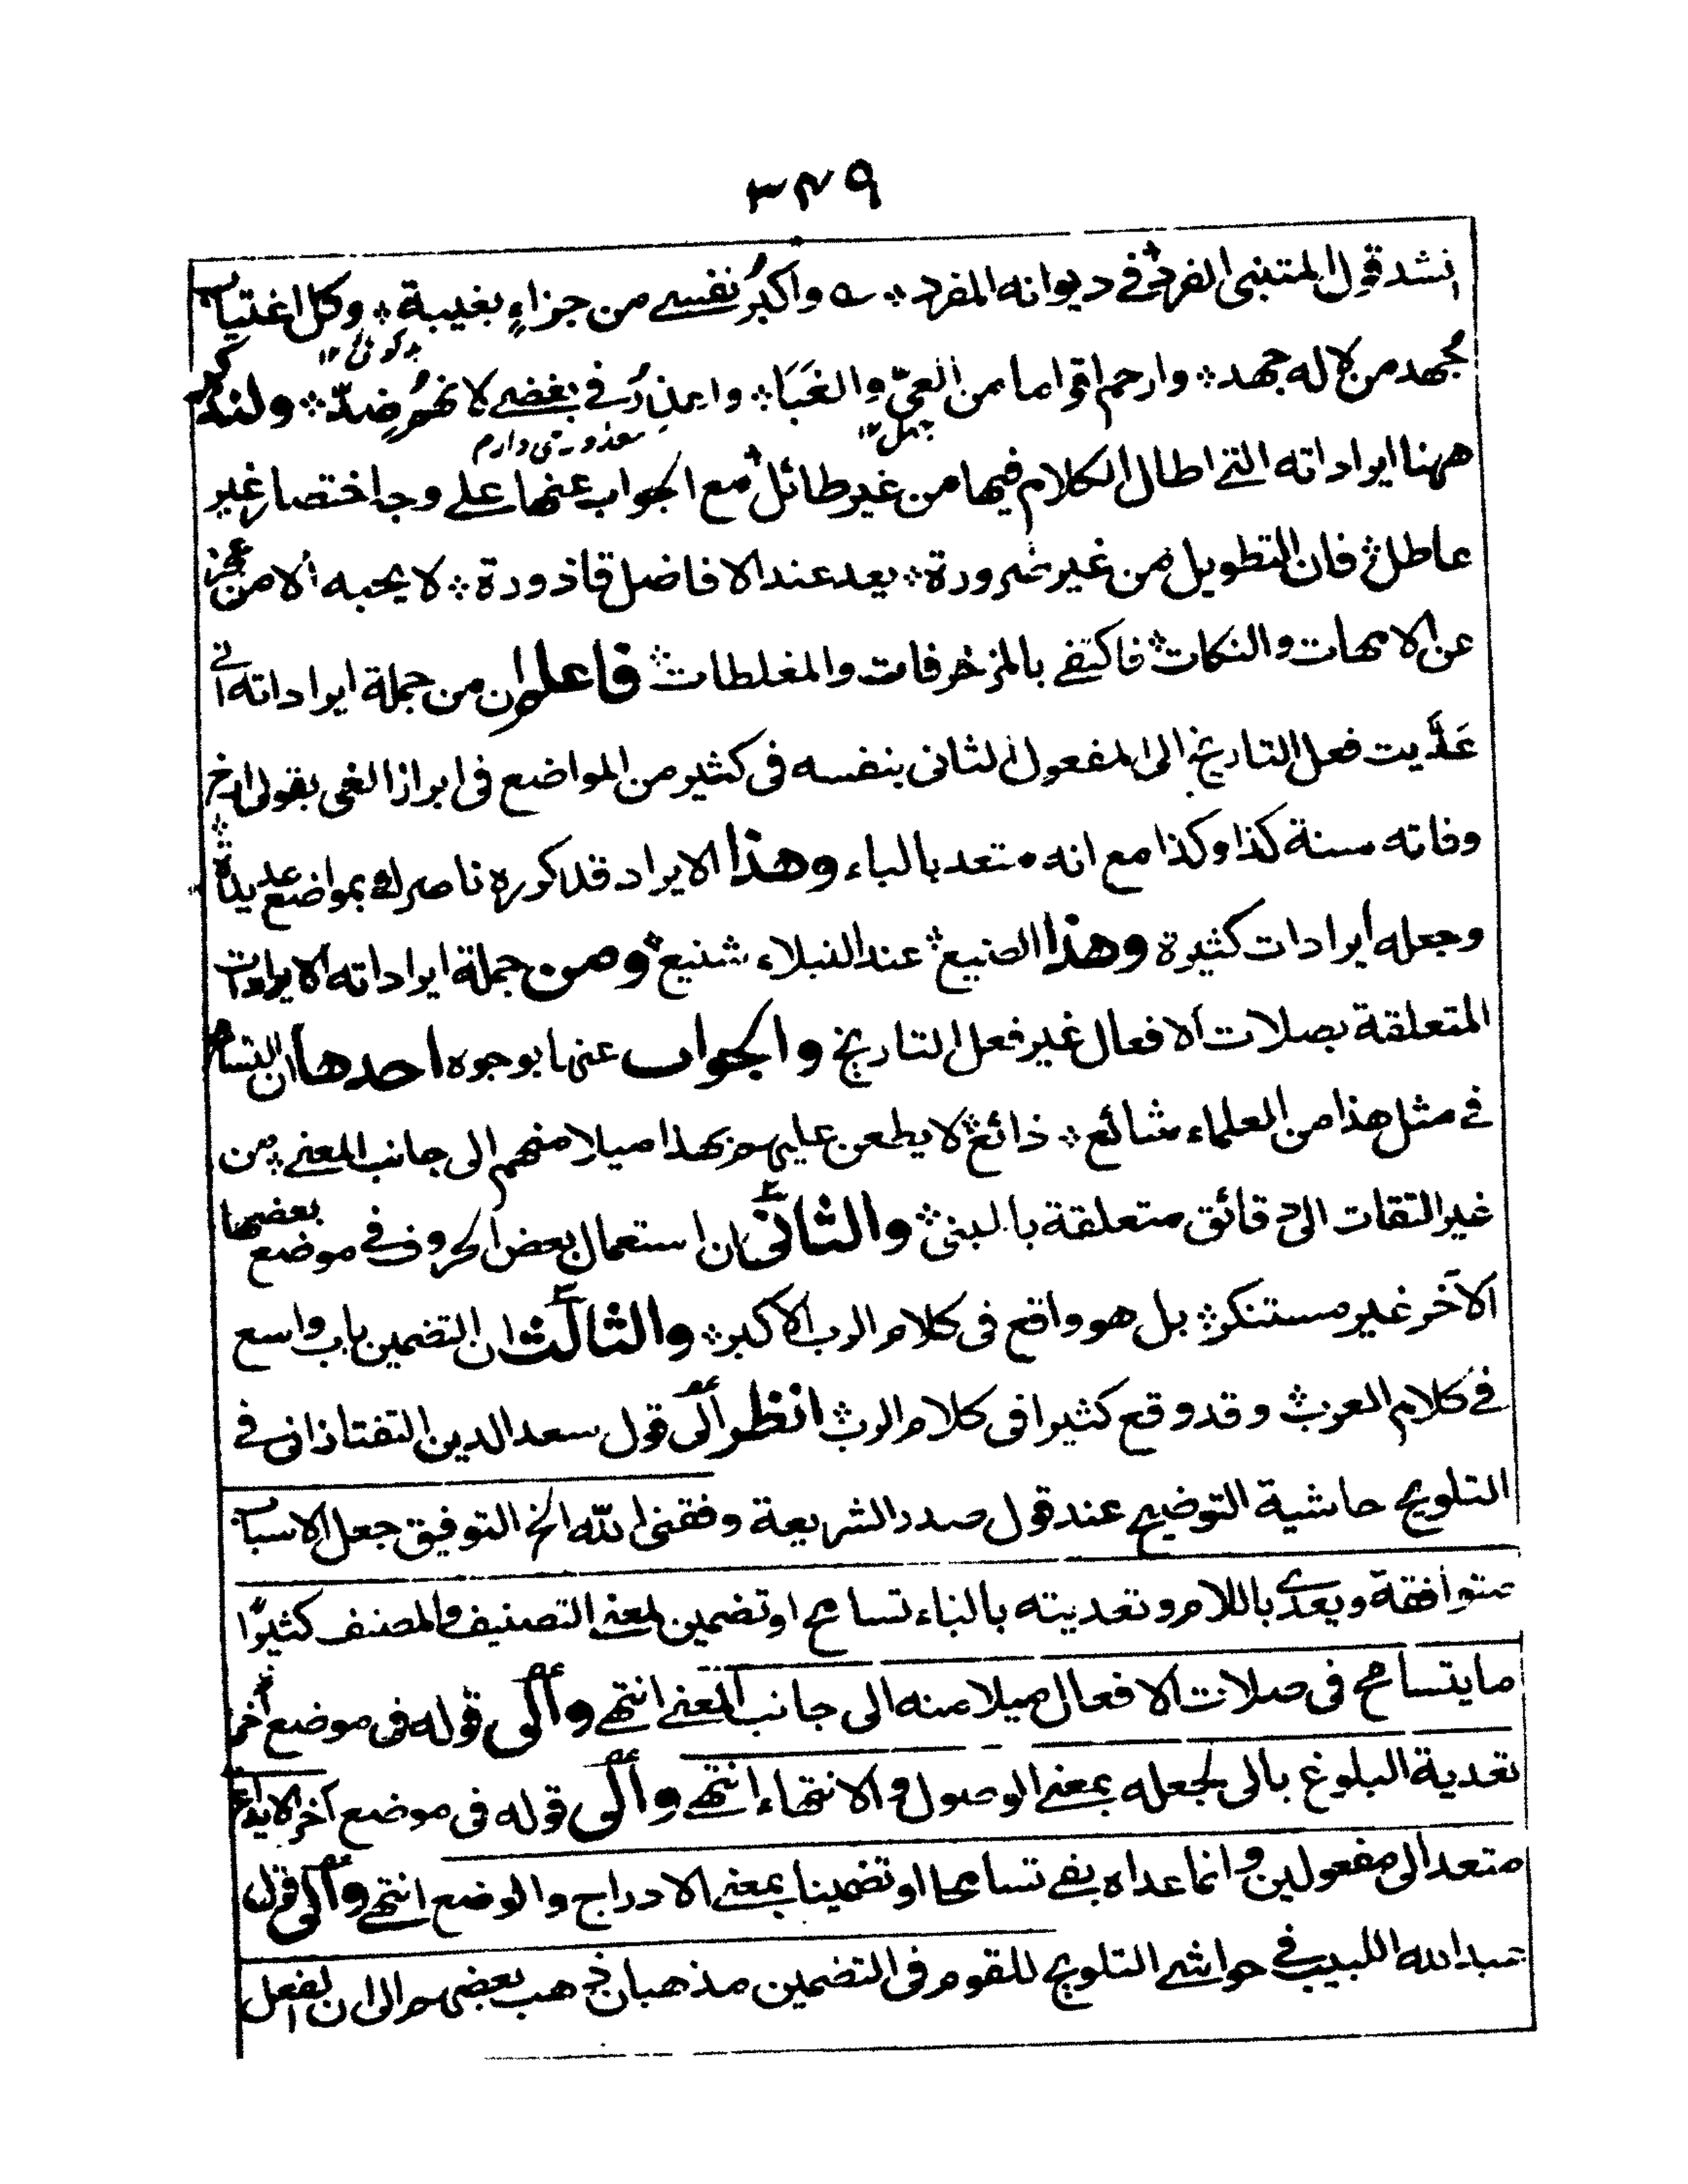 ٣٤٩
انشد قول المتنبى الفرد في ديوانه المفرد ؎ واكبرُ نفسي من جزاءٍ بغيبة ؞ وكل اغتياب
جُهد من لا له جهد ؞ وارحم اقواما من العيّ والغبَا ؞ واعذِرُ في بغضي لانهم ضدّ ؞ ولنذكر
جهل ١٢
معذور می دارم
ههنا ايراداته التي اطال الكلام فيها من غير طائل مع الجواب عنها على وجه اختصار غير
عاطل ؞ فان التطويل من غير ضرورة ؞ يعد عند الافاضل قاذورة ؞ لا يحبه الا من عجز
عن الامهات والنكات ؞ فاكتفى بالمزخرفات والمغلطات ؞ فاعلم ان من جملة ايراداته انى
عَدّيت فعل التاريخ الى المفعول الثانى بنفسه فى كثير من المواضع فى ابراز الغى بقولى ارخ
وفاته سنة كذا وكذا مع انه متعد بالباء وهذا الايراد قد كرره ناصرك بمواضع عديدة ؞
وجعله ايرادات كثيرة وهذا الصنيع ؞ عند النبلاء شنيع ؞ ومن جملة ايراداته الايرادات
المتعلقة بصلات الافعال غير فعل التاريخ والجواب عنها بوجوه احدها ان التسامح
في مثل هذا من العلماء شائع ؞ ذائع ؞ لا يطعن عليهم بهذا ميلا منهم الى جانب المعنى ؞ من
غير التفات الى دقائق متعلقة بالمبنى ؞ والثانى ان استعمال بعض الحروف في موضع بعضها
الآخر غير مستنكر ؞ بل هو واقع فى كلام الرب الاكبر ؞ والثالث ان التضمين باب واسع
في كلام العرب ؞ وقد وقع كثيرا فى كلام الرب ؞ انظر الى قول سعد الدين التفتازانى في
التلويح حاشية التوضيح عند قول صدر الشريعة وفقنى الله الخ التوفيق جعل الاسباب
متوافقة ويعدى باللام وتعديته بالباء تسامح او تضمين لمعنى التصنيف والمصنف كثيرًا
ما يتسامح فى صلات الافعال ميلا منه الى جانب المعنى انتهى والى قوله فى موضع آخر
تعدية البلوغ بالى لجعله بمعنى الوصول والانتهاء انتهى والى قوله فى موضع آخر الايداع
متعد الى مفعولين وانما عداه بفى تسامحا او تضمينا بمعنى الادراج والوضع انتهى والى قول
عبد الله اللبيب في حواشى التلويح للقوم فى التضمين مذهبان ذهب بعضهم الى ان الفعل